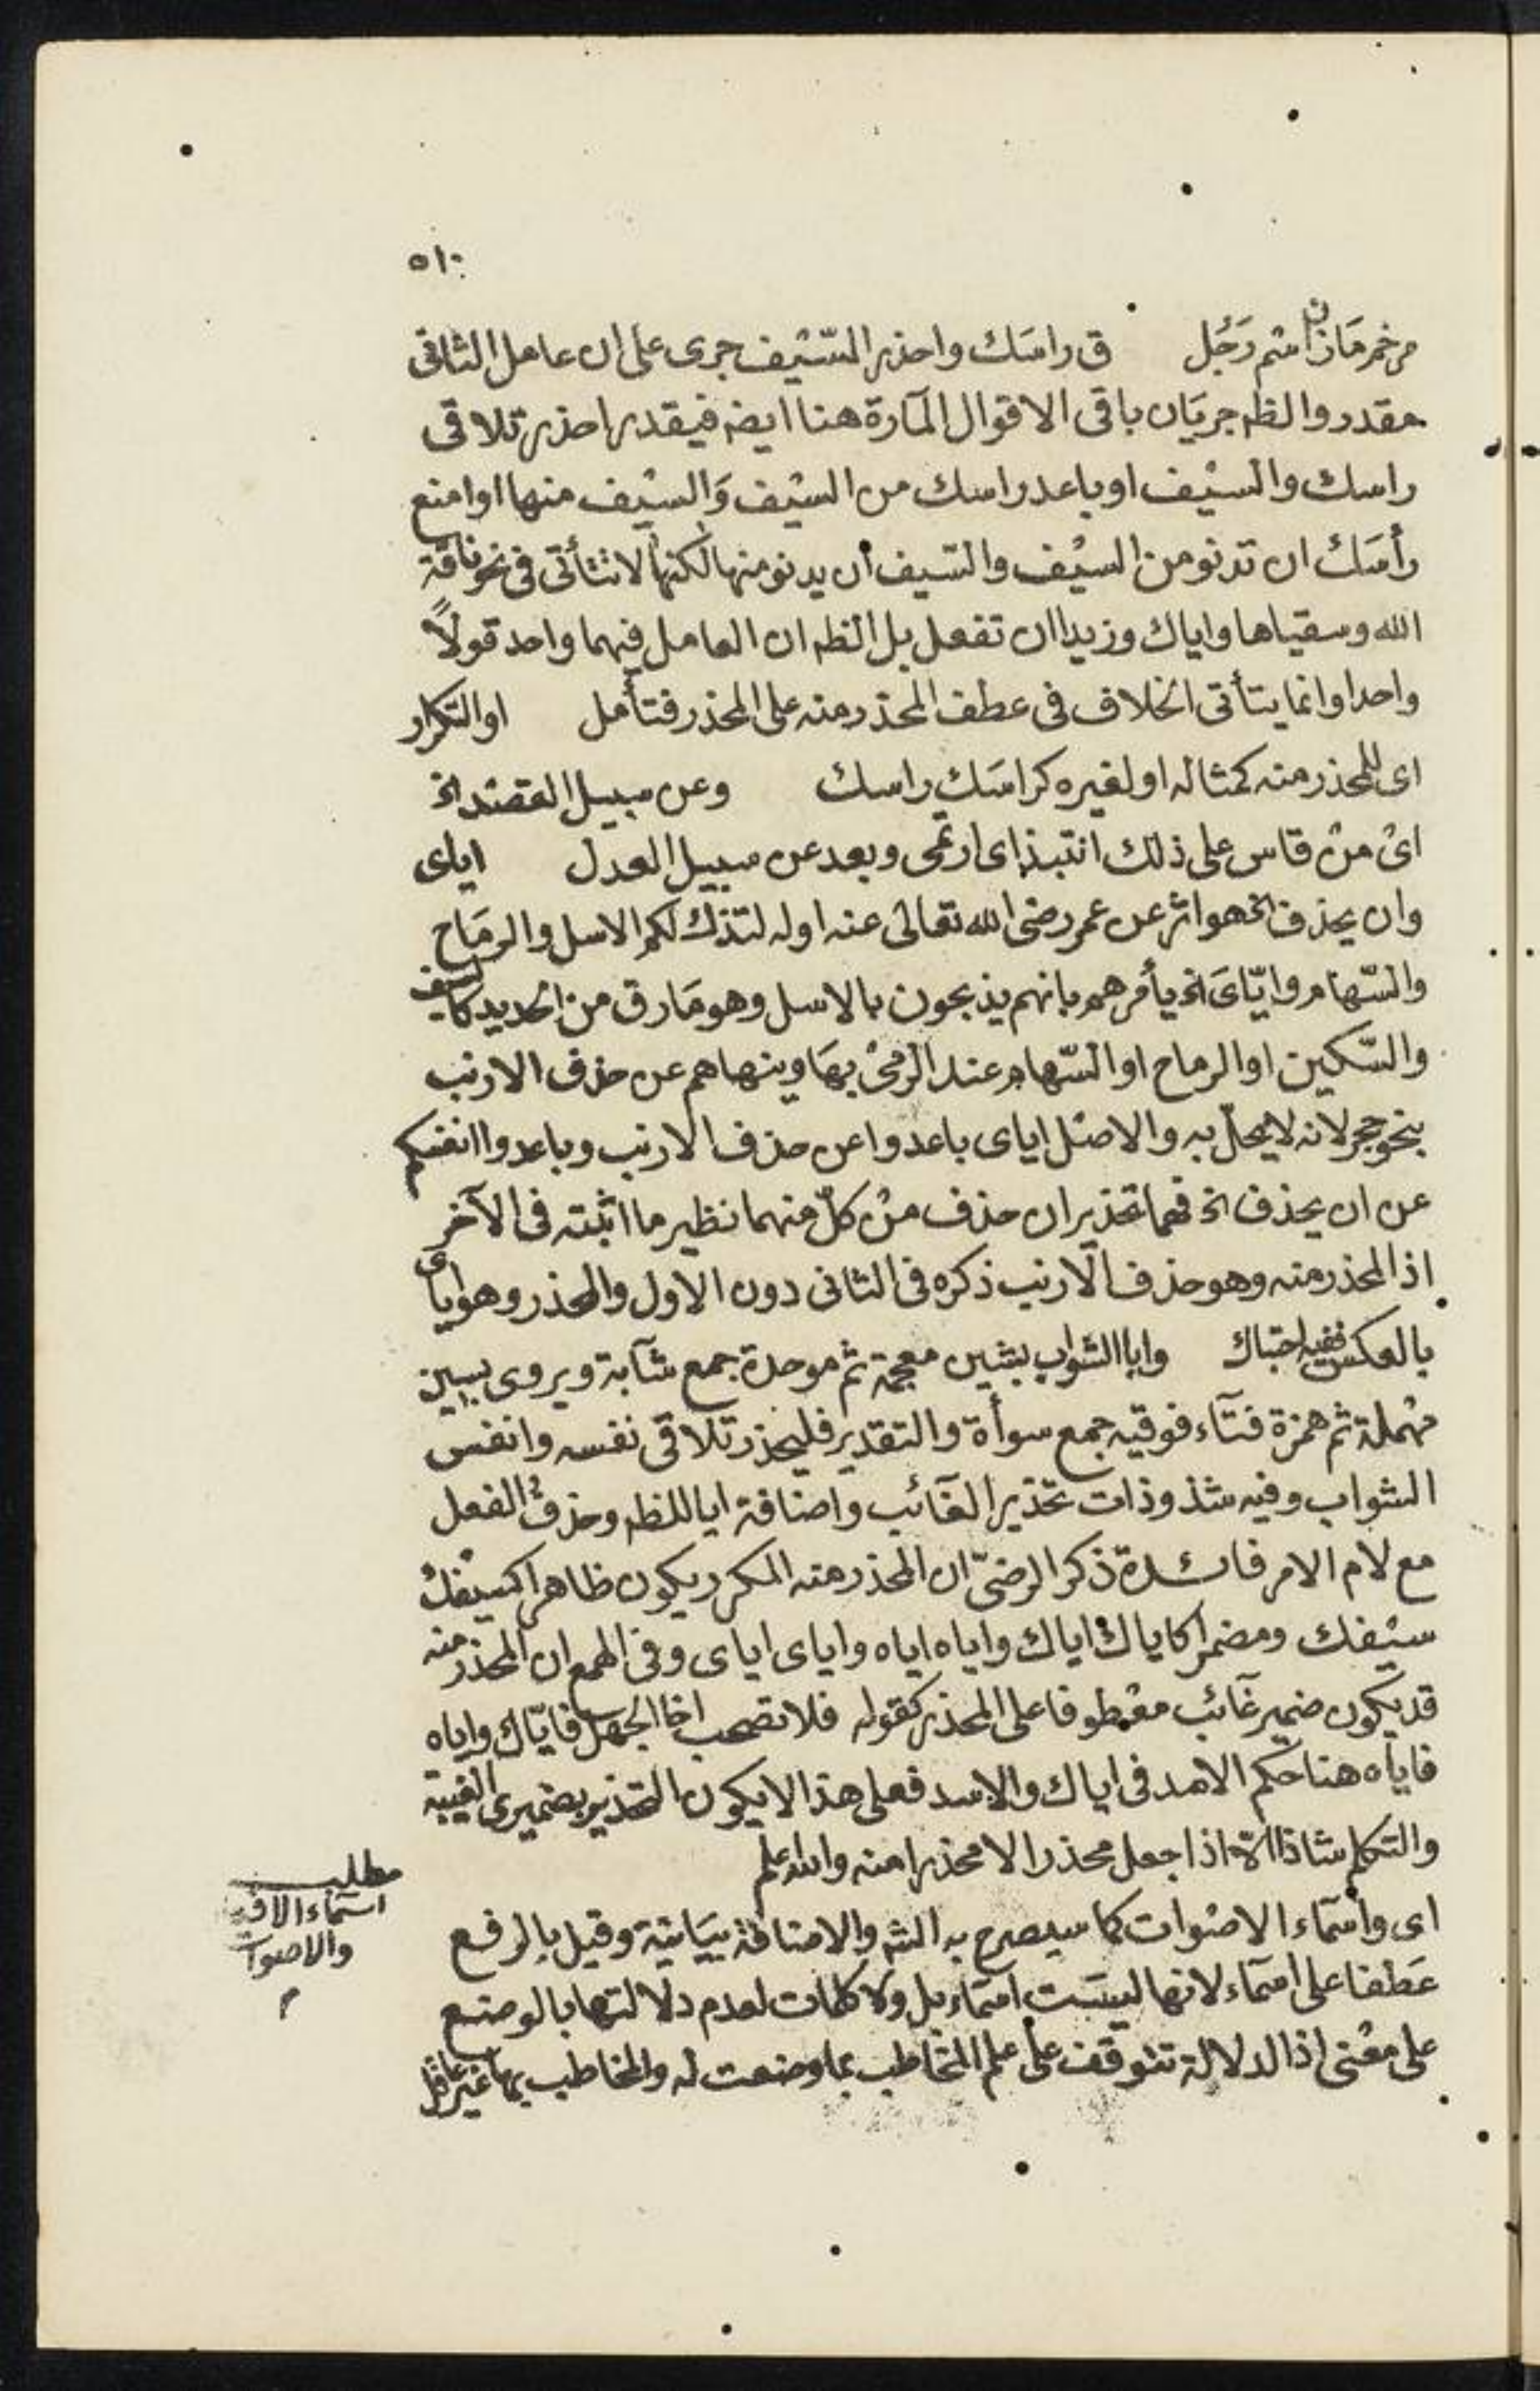 ٥١٠
مرخم مازن اسم رَجُل ق راسَك واحذر السّيْف جرى على ان عامل الثانى
مقدر والظه جريَان باقى الاقوال المآرة هنا ايضه فيقدر احذر تلاقى
راسك والسيْف او باعد راسك من السيْف وَالسيْف منها او امنع
رأسَك ان تدنو من السيْف والسّيف أن يدنو منها لكنها لا تتأتى فى نحو ناقة
الله وسقياها واياك وزيدا ان تفعل بل الظه ان العامل فيهما واحد قولاً
واحدا وانما يتأتى الخلاف فى عطف المحذر منه على المحذر فتأمل او التكرار
اى للمحذر منه كمثاله او لغيره كراسَك راسك وعن سبيل القصْد الخ
اىْ منْ قاس على ذلك انتبذ اى ارتمى وبعد عن سبيل العدل اياى
وان يحذف الخ هو اثر عن عمر رضى الله تعالى عنه اوله لتذك لكم الاسل والرمَاح
والسّهام وايّاىَ الخ يأمرهم بانهم يذبحون بالاسل وهو مَا رق من الحديد كالسيف
والسّكين او الرماح او السّهام عند الرمىْ بهَا وينهاهم عن حذف الارنب
بنحو حجر لانه لا يحلّ به والاصْل اياى باعدوا عن حذف الارنب وباعدوا انفسكم
عن ان يحذف الخ فهما تحذيران حذف منْ كلّ منهما نظير ما اثبته فى الآخر
اذ المحذر منه وهو حذف الارنب ذكره فى الثانى دون الاول والمحذر وهو اياى
بالعكس ففيه احتباك وايا الشواب بشين معجمة ثم موحدة جمع شآبة ويروى بسين
مهْملة ثم همزة فتآء فوقيه جمع سوأة والتقدير فليحذر تلاقى نفسه وانفس
الشواب وفيه شذوذات تحذير الغآئب واضافة ايا للظه وحذف الفعل
مع لام الامر فائدة ذكر الرضىّ ان المحذر منه المكرر يكون ظاهرا كسيْفكْ
سيْفك ومضمرا كاياك اياك واياه اياه واياى اياى وفى الهمع ان المحذر منه
قد يكون ضمير غآئب معْطوفا على المحذر كقوله فلا تصحب اخا الجهل فايّاك واياه
فاياه هنا حكم الاسد فى اياك والاسد فعلى هذا لا يكون التحذير بضميرى الغيبة
والتكلم شاذا الا اذا جعل محذرا لا محذرا منه والله اعلم
اى واسمآء الاصْوات كما سيصرح به الشه والاضافة بيَانية وقيل بالرفع
عَطفا على اسمآء لانها ليسَت اسمَاء بل ولا كلمات لعدم دلالتها بالوضع
على معْنى اذ الدلالة تتوقف على علم المخاطب بما وضعت له والمخاطب بها غير عاقل
مطلب
اسمَاء الافـ
والاصوات
م